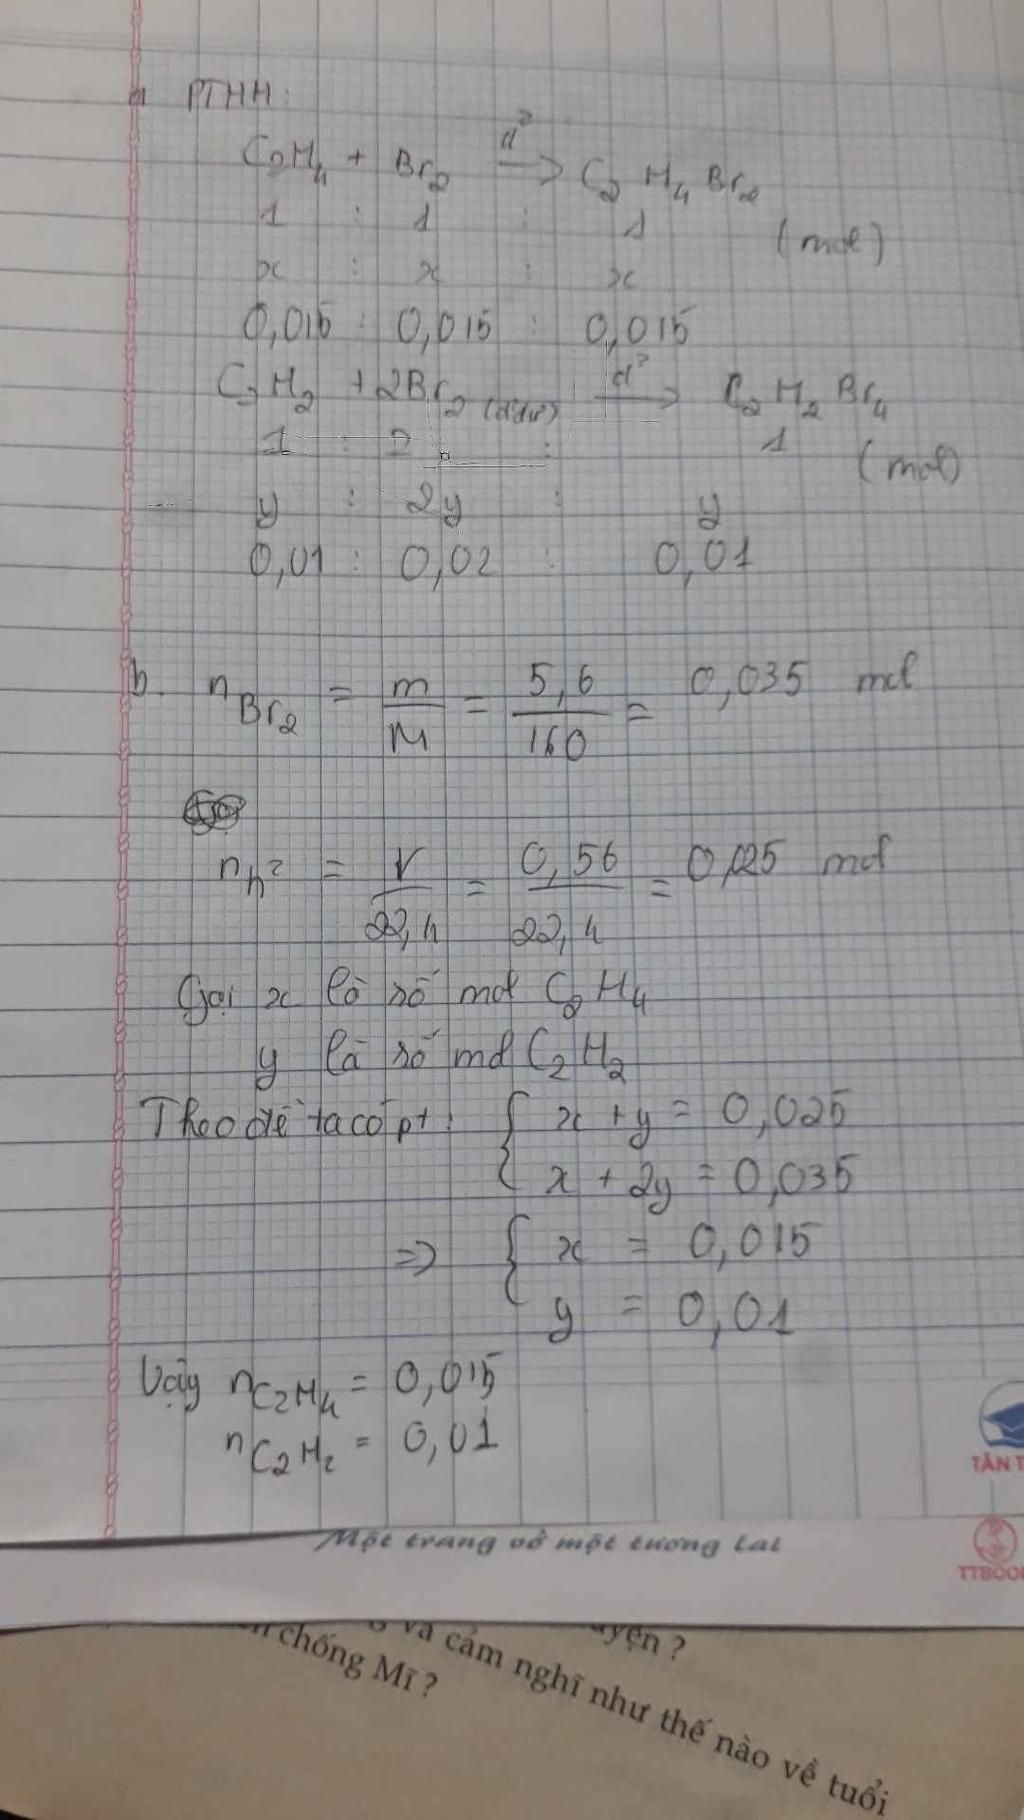 a PTHH:
C2H4 + Br2 → C2H4Br2
1 : 1 : 1 (mol)
x : x : x
0,015 : 0,015 : 0,015
C2H2 + 2Br2 (dư) → C2H2Br4
1 : 2 : 1 (mol)
y : 2y : y
0,01 : 0,02 : 0,01
b. nBr2 = m/M = 5,6/160 = 0,035 mol
nh² = V/22,4 = 0,56/22,4 = 0,025 mol
Gọi x là số mol C2H4
y là số mol C2H2
Theo đề ta có pt: { x + y = 0,025
x + 2y = 0,035
=> { x = 0,015
y = 0,01
Vậy nC2H4 = 0,015
nC2H2 = 0,01
TÂN T
Một trang vở một tương lai
TTBOO
và cảm nghĩ như thế nào về tuổi
chống Mĩ ?